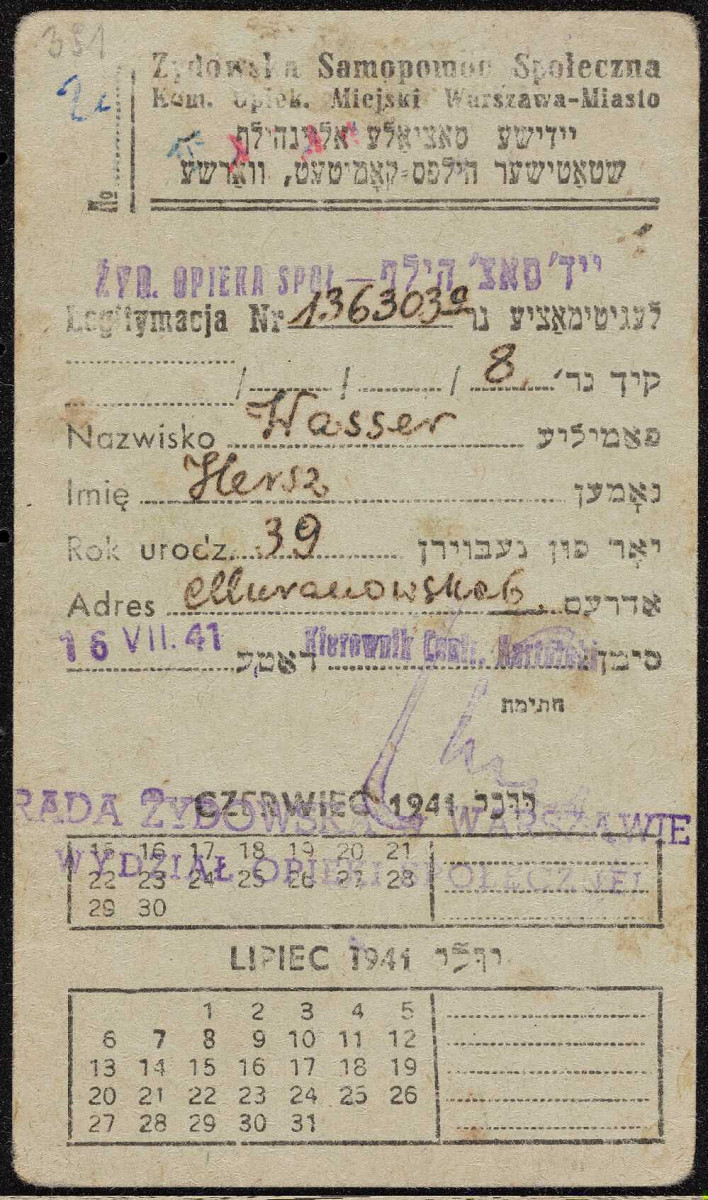 391
Żydowska Samopomoc Społeczna
Kom. Opiek. Miejski Warszawa-Miasto
יידישע סאציאלע אליינהילף
שטאטישער הילפס-קאמיטעט, ווארשע
№
ŻYD. OPIEKA SPOŁ — ייד' סאצ' הילף
Legitymacja Nr 136303a לעגיטימאציע נר
/ / / 8 קיך נר'
Nazwisko Wasser פאמיליע
Imię Hersz נאמען
Rok urodz. 39 יאר פון געבוירן
Adres Muranowska 6 אדרעס
16 VII. 41 דאטע Kierownik Centr. סימן
חתימת
CZERWIEC 1941 יוני
RADA ŻYDOWSKA w WARSZAWIE
WYDZIAŁ OPIEKI SPOŁECZNEJ
15 16 17 18 19 20 21
22 23 24 25 26 27 28
29 30
LIPIEC 1941 יולי
1 2 3 4 5
6 7 8 9 10 11 12
13 14 15 16 17 18 19
20 21 22 23 24 25 26
27 28 29 30 31